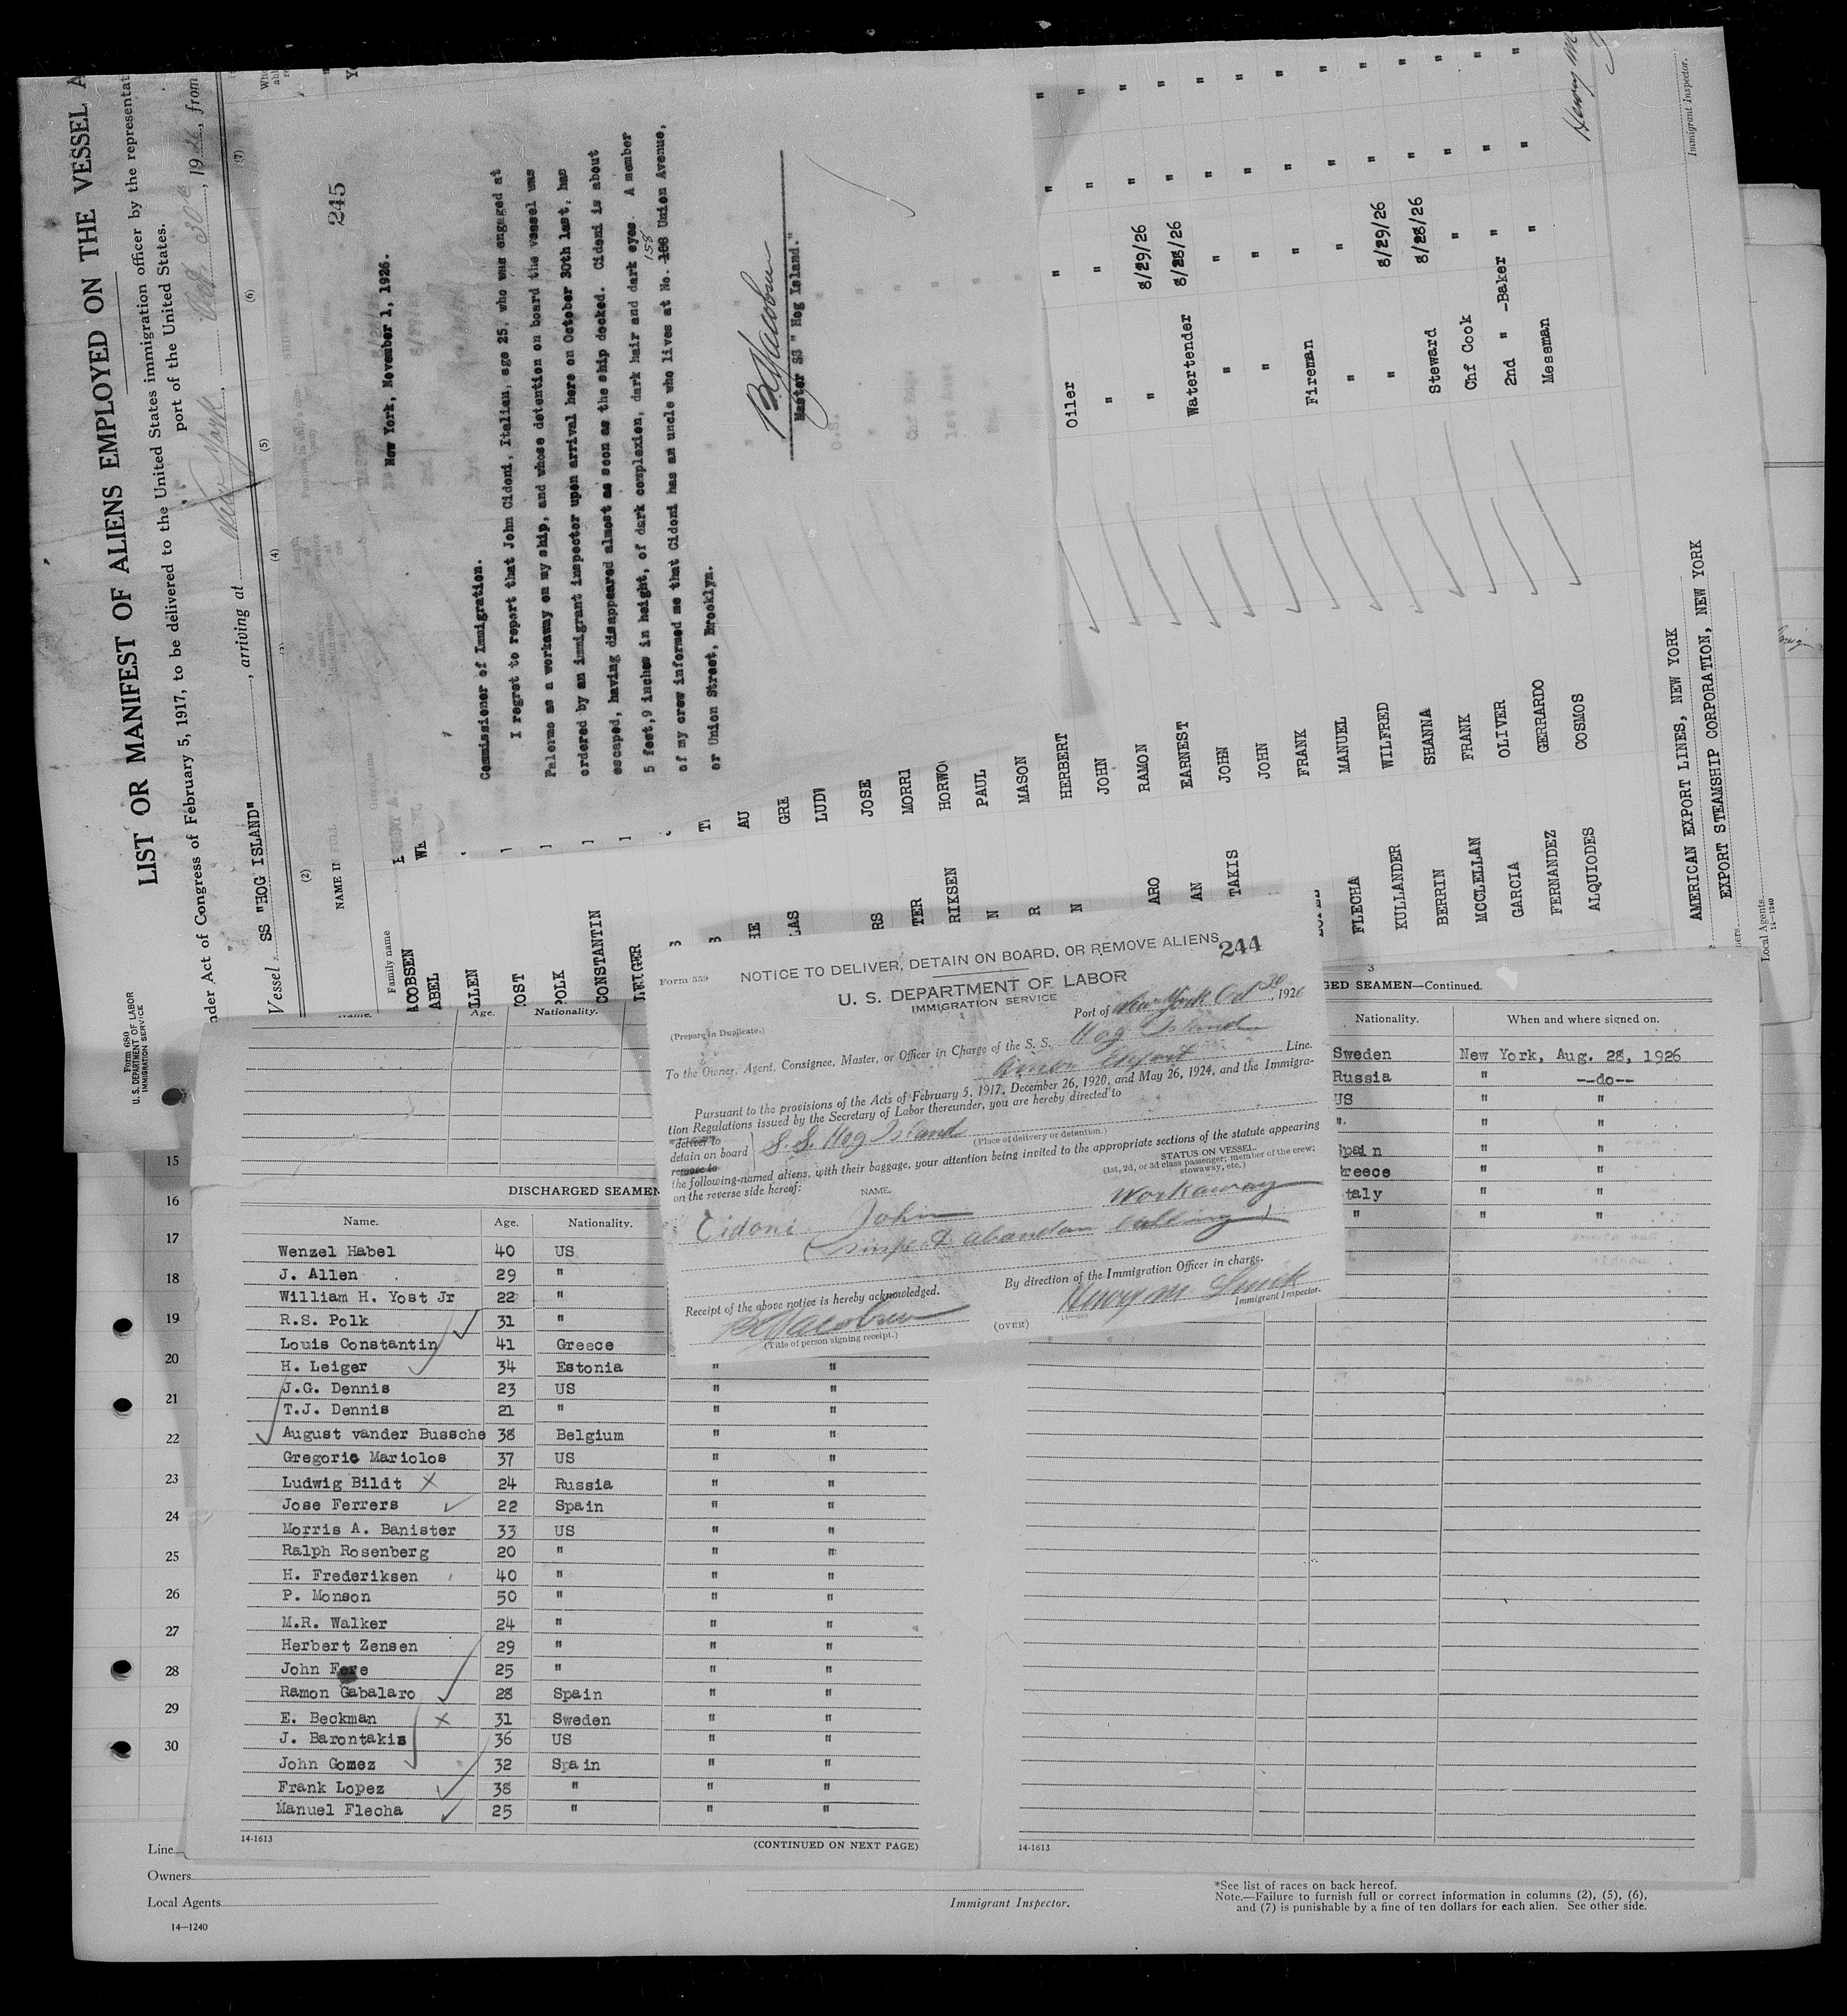 LIST OR MANIFEST OF ALIENS EMPLOYED ON THE VESSEL A
nder Act of Congress of February 5, 1917, to be delivered to the United States immigration officer by the representat
port of the United States.
Vessel SS "HOG ISLAND", arriving at New York, Oct. 30th, 1926, from
(2) (4) (5) (6) (7)
NAME IN FULL
Family name
Form 680
U. S. DEPARTMENT OF LABOR
IMMIGRATION SERVICE
245
New York, November 1, 1926.
Commissioner of Immigration.
I regret to report that John Cidoni, Italian, age 25, who was engaged at
Palermo as a workaway on my ship, and whose detention on board the vessel was
ordered by an immigrant inspector upon arrival here on October 30th last, has
escaped, having disappeared almost as soon as the ship docked. Cidoni is about
5 feet,9 inches in height, of dark complexion, dark hair and dark eyes. A member
158
of my crew informed me that Cidoni has an uncle who lives at No. 186 Union Avenue,
or Union Street, Brooklyn.
Master SS " Hog Island."
ACOBSEN
ABEL
LLEN
OST
POLK
CONSTANTIN
LEIGER
AU
GRE
LUDW
JOSE
MORRI
HORWO
RIKSEN PAUL
N MASON
R HERBERT Oiler " "
N JOHN " " "
ARO RAMON " 8/29/26 "
AN EARNEST Watertender 8/28/26 "
TAKIS JOHN " " "
JOHN " " "
FRANK Fireman " "
FLECHA MANUEL " " "
KULLANDER WILFRED " 8/29/26 "
BERRIN SHANNA Steward 8/28/26 "
MCCLELLAN FRANK Chf Cook " "
GARCIA OLIVER 2nd " -Baker " "
FERNANDEZ GERRARDO Messman " "
ALQUIODES COSMOS
Henry M
Immigrant Inspector.
AMERICAN EXPORT LINES, NEW YORK
EXPORT STEAMSHIP CORPORATION, NEW YORK
Local Agents
14-1240
Form 559
NOTICE TO DELIVER, DETAIN ON BOARD, OR REMOVE ALIENS
244
U. S. DEPARTMENT OF LABOR
IMMIGRATION SERVICE
(Prepare in Duplicate.)
Port of New York Oct 30, 1926
To the Owner, Agent, Consignee, Master, or Officer in Charge of the S. S. Hog Island
Amer Export Line.
Pursuant to the provisions of the Acts of February 5, 1917, December 26, 1920, and May 26, 1924, and the Immigra-
tion Regulations issued by the Secretary of Labor thereunder, you are hereby directed to
*deliver to
detain on board
remove to
S.S. Hog Island
(Place of delivery or detention.)
the following-named aliens, with their baggage, your attention being invited to the appropriate sections of the statute appearing
on the reverse side hereof:
NAME.
STATUS ON VESSEL
(1st, 2d, or 3d class passenger; member of the crew;
stowaway, etc.)
Cidoni John Workaway
abandon calling)
By direction of the Immigration Officer in charge.
Receipt of the above notice is hereby acknowledged.
Immigrant Inspector.
(Title of person signing receipt.)
(OVER)
Name. Age. Nationality.
DISCHARGED SEAMEN
Name. Age. Nationality.
Wenzel Habel 40 US
J. Allen 29 "
William H. Yost Jr 22 "
R.S. Polk 31 "
Louis Constantin 41 Greece
H. Leiger 34 Estonia " "
J.G. Dennis 23 US " "
T.J. Dennis 21 " " "
August vander Bussche 38 Belgium " "
Gregorio Mariolos 37 US " "
Ludwig Bildt X 24 Russia " "
Jose Ferrers 22 Spain " "
Morris A. Banister 33 US " "
Ralph Rosenberg 20 " " "
H. Frederiksen 40 " " "
P. Monson 50 " " "
M.R. Walker 24 " " "
Herbert Zensen 29 " " "
John Fere 25 " " "
Ramon Gabalaro 28 Spain " "
E. Beckman X 31 Sweden " "
J. Barontakis 36 US " "
John Gomez 32 Spain " "
Frank Lopez 38 " " "
Manuel Flecha 25 " " "
14-1613
(CONTINUED ON NEXT PAGE)
3
GED SEAMEN—Continued.
Nationality. When and where signed on.
Sweden New York, Aug. 28, 1926
Russia " --do--
US " "
" " "
Spain " "
Greece " "
Italy " "
" " "
14-1613
15
16
17
18
19
20
21
22
23
24
25
26
27
28
29
30
Line
Owners
Local Agents
14-1240
Immigrant Inspector.
*See list of races on back hereof.
Note.—Failure to furnish full or correct information in columns (2), (5), (6),
and (7) is punishable by a fine of ten dollars for each alien. See other side.